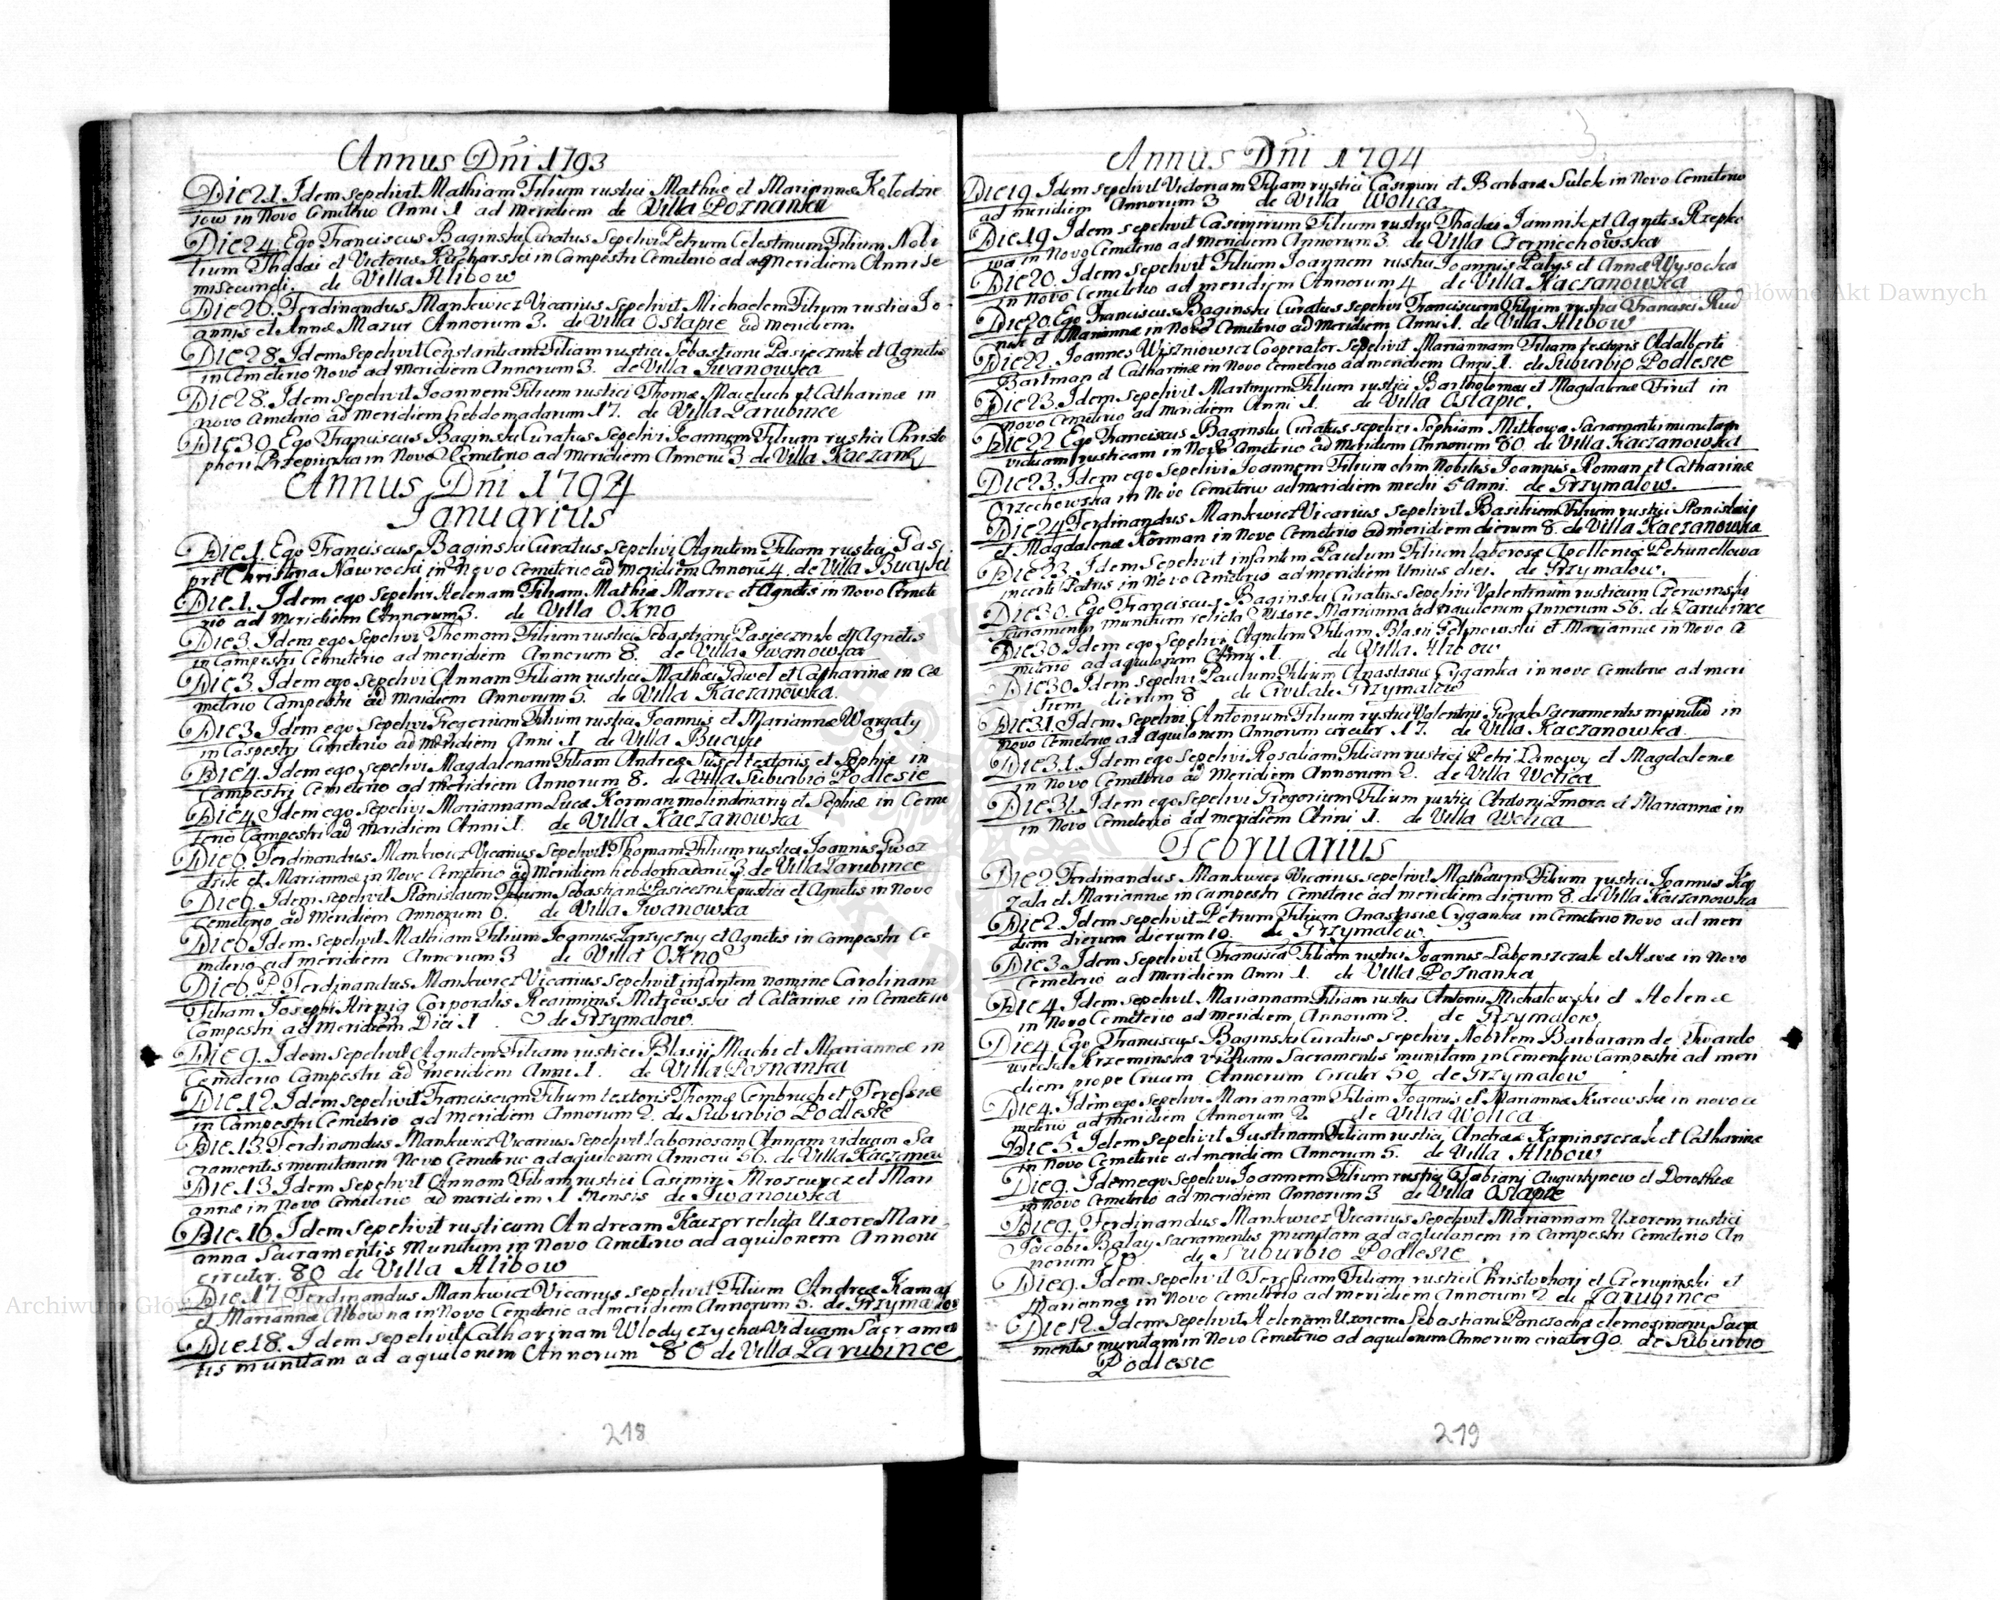 Annus Dni 1793
Die 21. Idem sepelivit Mathiam Filium rustici Mathiæ et Mariannæ Kolodzie
jow in Novo Cmeterio Anni 1 ad Meridiem de Villa Poznanka
Die 24. Ego Franciscus Baginski Curatus Sepelivi Petrum Celestinum Filium Nobi
lium Thddæi et Victoriæ Kucharski in Campestri Cemeterio ad Meridiem Anni Se
misecundi. de Villa Hlibow
Die 26. Ferdinandus Mankwicz Vicarius Sepelivit Michaelem Filium rustici Jo
annis et Annæ Mazur Annorum 3. de Villa Ostapie ad meridiem.
Die 28. Idem Sepelivit Constantiam Filiam rustici Sebastiani Pasiecznik et Agnetis
in Cemeterio Novo ad Meridiem Annorum 3. de Villa Iwanowka
Die 28. Idem sepelivit Joannem Filium rustici Thomæ Maciuch et Catharinæ in
novo Cmeterio ad Meridiem hebdomadarum 17. de Villa Zarubince
Die 30. Ego Franciscus Baginski Curatus Sepelivi Joannem Filium rustici Christo
phori Przepiurka in Novo Cemeterio ad Meridiem Annoru 3 de Villa Kaczan
Annus Dni 1794
Januarius
Die 1. Ego Franciscus Baginski Curatus sepelivi Agnetem Filiam rustici Gas
pri Christina Nawrocki in Novo Cemeterio ad meridiem Annoru 4. de Villa Bucyki
Die 1. Idem ego Sepelivi Helenam Filiam Mathiæ Marzec et Agnetis in Novo Cemete
rio ad meridiem Annorum 3. de Villa Okno
Die 3. Idem ego Sepelivi Thomam Filium rustici Sebastiani Pasiecznik et Agnetis
in Campestri Cemeterio ad meridiem Annorum 8. de Villa Iwanowka
Die 3. Idem ego sepelivi Annam Filiam rustici Mathæi Pawel et Catharinæ in Cæ
meterio Campestri ad meridiem Annorum 5. de Villa Kaczanowka.
Die 3 Idem ego Sepelivi Gregorium Filium rustici Joannis et Mariannæ Wargaty
in Caspestri Cemeterio ad Meridiem Anni 1 de Villa Bucyki
Die 4. Idem ego sepelivi Magdalenam Filiam Andreæ Susel textoris et Sophiæ in
Campestri Cemeterio ad Meridiem Annorum 8. de Villa Suburbio Podlesie
Die 4 Idem ego Sepelivi Mariannam Lucæ Korman molindinary et Sophiæ in Ceme
terio Campestri ad Meridiem Anni 1. de Villa Kaczanowka
Die 6 Ferdinandus Mankwicz Vicarius Sepelivit Thomam Filium rustici Joannis Gwoz
dzik et Mariannæ in Novo Cemeterio ad Meridiem hebdomadaru 3 de Villa Zarubince
Die 6. Idem sepelivit Stanislaum Filium Sebastiani Pasiecznik rustici et Agnetis in Novo
Cemeterio ad Meridiem Annorum 6. de Villa Iwanowka
Die 6 Idem sepelivit Mathiam Filium Joannis Tarzyczny et Agnetis in Campestri Ce
meterio ad meridiem Annorum 3 de Villa Okno
Die 6. P. Ferdinandus Mankwicz Vicarius sepelivit infantem nomine Carolinam
Filiam Josephi Hirnig Corporalis Regiminis Mitrowski et Catarinæ in Cemeterio
Campestri ad Meridiem Diei 1 de Grzymalow.
Die 9. Idem sepelivit Agnetem Filiam rustici Blasii Machi et Mariannæ in
Cemeterio Campestri ad meridiem Anni 1. de Villa Poznanka
Die 12. Idem sepelivit Franciscum Filium textoris Thomæ Cembruch et Teressiæ
in Campestri Cemeterio ad meridiem Annorum 2. de Suburbio Podlesie
Die 13. Ferdinandus Mankwicz Vicarius Sepelivit laboriosam Annam viduam Sa
cramentis munitam in Novo Cemeterio ad aquilonem Annoru 56. de Villa Kaczanow
Die 13. Idem Sepelivit Annam Filiam rustici Casimiri Mrozewycz et Mari
annæ in Novo Cemeterio ad meridiem 1 Mensis de Iwanowka
Die 16. Idem Sepelivit rusticum Andream Kaczor relicta Uxore Mari
anna Sacramentis Munitum in Novo Cmeterio ad aquilonem Annoru
circiter 80 de Villa Hlibow
Die 17. Ferdinandus Mankwicz Vicarius sepelivit Filium Andreæ Kamas
et Mariannæ Albowna in Novo Cemeterio ad meridiem Annorum 5. de Grzymalow
Die 18. Idem sepelivit Catharinam Wlodyczycha Viduam Sacramen
tis munitam ad aquilonem Annorum 80 de Villa Zarubince
218
Annus Dni 1794
Die 19. Idem sepelivit Victoriam Filiam rustici Casimiri et Barbaræ Sulek in Novo Cemeterio
ad meridiem Annorum 3 de Villa Wolica.
Die 19 Idem sepelivit Casimirum Filium rustici Thadæi Jamnik et Agnetis Rzepko
wa in Novo Cemeterio ad Meridiem Annorum 3. de Villa Czerniechowska
Die 20. Idem Sepelivit Filium Joannem rustici Joannis Patys et Annæ Wysocka
in Novo Cemeterio ad meridiem Annorum 4 de Villa Kaczanowka
Die 20. Ego Franciscus Baginski Curatus sepelivi Franciscum Filium rustici Francisci Rud
nik et Mariannæ in Novo Cmeterio ad Meridiem Anni 1. de Villa Hlibow
Die 22. Joannes Wiszniowicz Cooperator Sepelivit Mariannam Filiam textoris Adalberti
Bartman et Catharinæ in Novo Cemeterio ad meridiem Anni 1. de Suburbio Podlesie
Die 23. Idem Sepelivit Martinum Filium rustici Bartholomæi et Magdalenæ Firut in
novo Cmeterio ad Meridiem Anni 1. de Villa Ostapie.
Die 22 Ego Franciscus Baginski Curatus sepelivi Sophiam Mitkowa Sacramentis munitam
viduam rusticam in Novo Cmeterio ad Meridiem Annorum 80 de Villa Kaczanowka
Die 23. Idem ego Sepelivi Joannem Filium olim Nobilis Joannis Roman et Catharinæ
Orzechowska in Novo Cemeterio ad meridiem medii 5 anni. de Grzymalow.
Die 24 Ferdinandus Mankwicz Vicarius sepelivit Basilium Filium rustici Stanislai
et Magdalenæ Korman in Novo Cemeterio ad meridiem dierum 8. de Villa Kaczanowka
Die 23. Idem Sepelivit infantem Paulum Filium laboriosæ Apolloniæ Petrunellowa
incerti Patris in Novo Cmeterio ad meridiem Unius diei. de Grzymalow.
Die 30. Ego Franciscus Baginski Curatus Sepelivi Valentinum rusticum Czerwinski
Sacramentis munitum relicta Uxore Marianna ad aquilonem Annorum 56. de Zarubince
Die 30 Idem ego Sepelivi Agnetem Filiam Blasii Gelinowski et Mariannæ in Novo Ce
meterio ad aquilonem Anni 1 de Villa Hlibow
Die 30 Idem sepelivi Paulum Filium Anastasiæ Cyganka in novo Cemeterio ad meri
diem dierum 8 de Civitate Grzymalow
Die 31. Idem Sepelivi Antonium Filium rustici Valentini Guzak Sacramentis munitu in
Novo Cemeterio ad aquilonem Annorum circiter 17. de Villa Kaczanowka.
Die 31. Idem ego Sepelivi Rosaliam Filiam rustici Petri Lanowy et Magdalenæ
in Novo Cemeterio ad Meridiem Annorum 2. de Villa Wolica
Die 31. Idem ego Sepelivi Gregorium Filium rustici Antoni Zmora et Mariannæ in
in Novo Cemeterio ad meridiem Anni 1. de Villa Wolica
Februarius
Die 2. Ferdinandus Mankwicz Vicarius sepelivit Mathæum Filium rustici Joannis Ko
zala et Mariannæ in Campestri Cemeterio ad meridiem dierum 8. de Villa Kaczanowka
Die 2. Idem Sepelivit Petrum Filium Anastasiæ Cyganka in Cemeterio Novo ad meri
diem dierum dierum 10. de Grzymalow.
Die 3. Idem Sepelivit Francisca Filiam rustici Joannis Labenszczak et Hævæ in Novo
Cemeterio ad Meridiem Anni 1. de Villa Poznanka
Die 4. Idem sepelivit Mariannam Filiam rustici Antonii Michalowski et Helenæ
in Novo Cemeterio ad meridiem Annorum 2. de Grzymalow
Die 4 Ego Franciscus Baginski Curatus sepelivi Nobilem Barbaram de Twardo
wreckich Krzeminska Viduam Sacramentis munitam in Cementerio Campestri ad meri
diem prope Crucem Annorum Circiter 50 de Grzymalow
Die 4. Idem ego Sepelivi Mariannam Filiam Joannis et Mariannæ Kurowski in novo ce
meterio ad meridiem Annorum 2. de Villa Wolica
Die 5 Idem sepelivit Justinam Filiam rustici Andreæ Kaminszczak et Catharinæ
in Novo Cemeterio ad meridiem Annorum 5. de Villa Hlibow
Die 9. Idem ego Sepelivi Joannem Filium rustici Fabiani Augustynow et Dorotheæ
in Novo Cmeterio ad meridiem Annorum 3 de Villa Ostapie
Die 9. Ferdinandus Mankwicz Vicarius sepelivit Mariannam Uxorem rustici
Jacobi Balay Sacramentis munitam ad aquilonem in Campestri Cemeterio An
norum de Suburbio Podlesie
Die 9. Idem Sepelivit Teressiam Filiam rustici Christophori et Czerupinski et
Mariannæ in Novo Cemeterio ad meridiem Annorum 2 de Zarubince
Die 12. Idem Sepelivit Helenam Uxorem Sebastiani Panczocha elemosinam Sacra
mentis munitam in Novo Cemeterio ad aquilonem Annorum circiter 90. de Suburbio
Podlesie
219
Archiwum Główne Akt Dawnych
Archiwum Główne Akt Dawnych